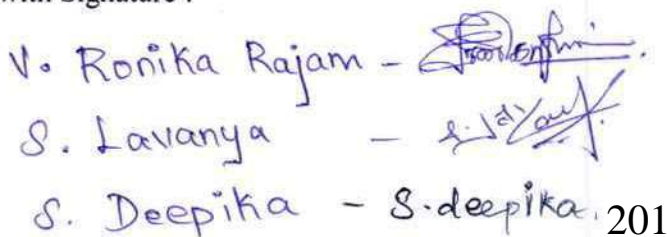 with Signature :
V. Ronika Rajam -
S. Lavanya - S.
S. Deepika - S. deepika. 201